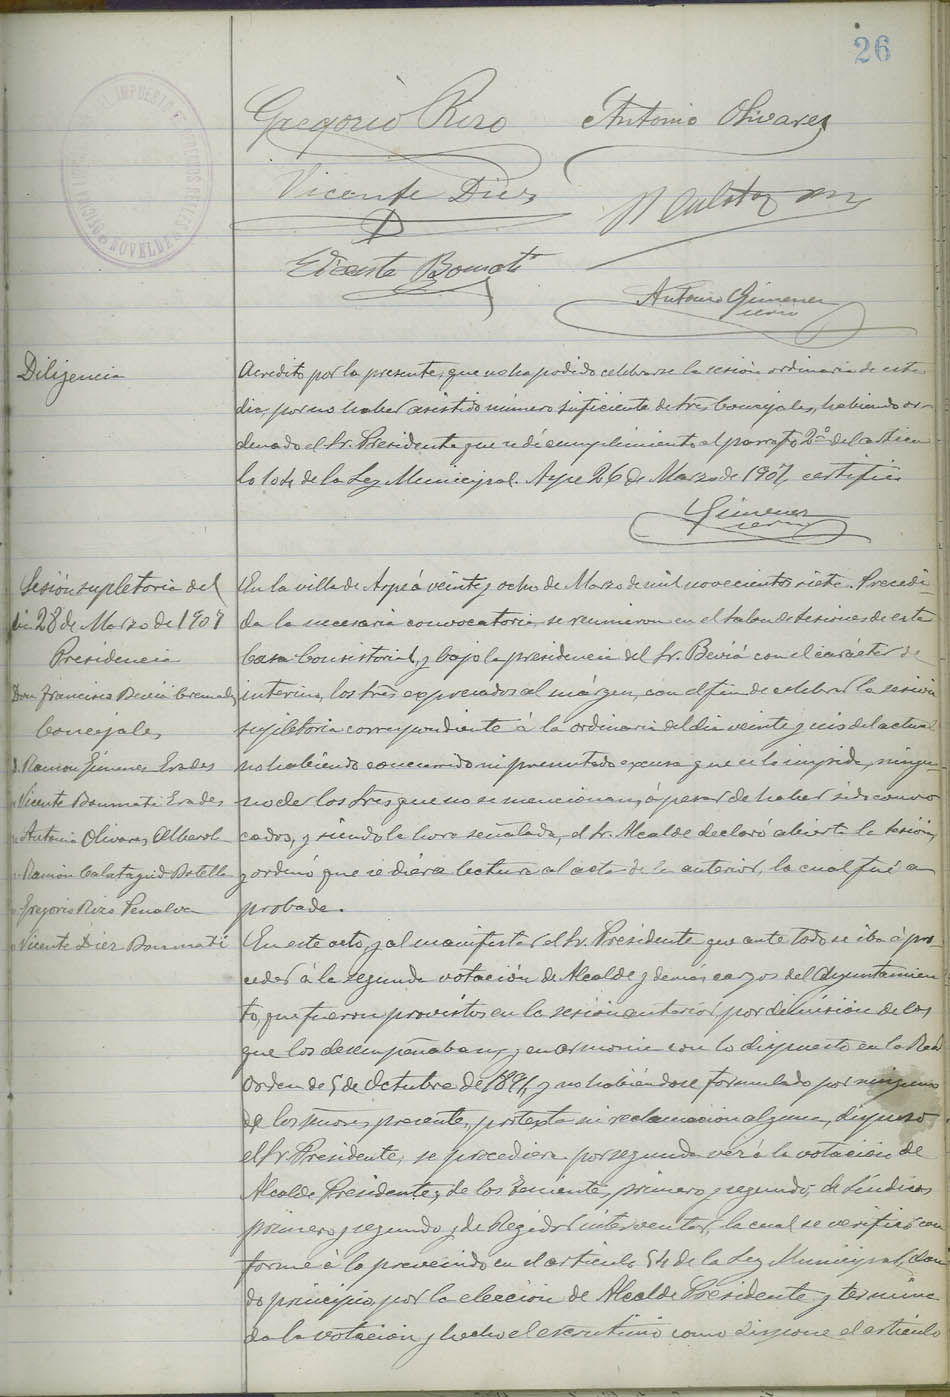 26
Gregorio Rizo Antonio Olivares
Vicente Diez
R Calatayud
Vicente Bonmatí
Antonio Gimenez
srrio
Diligencia
Acredito por la presente, que no ha podido celebrarse la sesión ordinaria de este
dia, por no haber asistido número suficiente de Sres Concejales, habiendo or-
denado el Sr. Presidente que se dé cumplimiento al parrafo 2º del artícu-
lo 104 de la Ley Municipal. Aspe 26 de Marzo de 1907, certifico
Gimenez
srrio
Sesión supletoria del
dia 28 de Marzo de 1907
Presidencia
Don Francisco Beviá Cremades
Concejales
D. Ramon Gimenez Erades
" Vicente Bonmati Erades
" Antonio Olivares Alberola
" Ramón Calatayud Botella
" Gregorio Rizo Penalva
" Vicente Diez Bonmatí
En la villa de Aspe á veinte y ocho de Marzo de mil novecientos siete. Precedi-
da la necesaria convocatoria, se reunieron en el salon de sesiones de esta
Casa Consistorial, y bajo la presidencia del Sr. Beviá con el carácter de
interino, los Sres expresados al márgen, con el fin de celebrar la sesión
supletoria correspondiente á la ordinaria del dia veinte y seis del actual
no habiendo concurrido ni presentado excusa que se lo impida, ningu-
no de los Sres que no se mencionan, á pesar de haber sido convo
cados, y siendo la hora señalada, el Sr. Alcalde declaró abierta la sesión,
y ordenó que se diera lectura al acta de la anterior, la cual fué a
probada.
En este acto, y al manifestar el Sr. Presidente que ante todo se iba á pro-
ceder á la segunda votación de Alcalde y demás cargos del Ayuntamien
to, que fueron provistos en la sesión anterior por dimisión de los
que los desempeñaban, y en armonia con lo dispuesto en la Real
Orden de 5 de Octubre de 1891, y no habiéndose formulado por ninguno
de los señores presentes, protesta ni reclamacion alguna, dispuso
el Sr. Presidente, se procediera por segunda vez á la votación de
Alcalde Presidente, y de los Tenientes, primero y segundo; de Síndicos
primero y segundo y de Regidor interventor, la cual se verificó con
forme á lo prevenido en el articulo 54 de la Ley Municipal, dan
do principio, por la elección de Alcalde Presidente y termina
da la votación y hecho el escrutinio como dispone el artículo